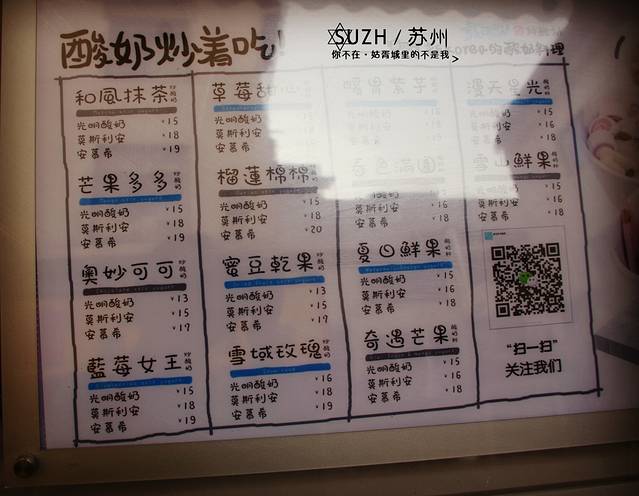 SUZH / 苏州
你不在·姑胥城里的不是我
酸奶炒着吃!
和風抹茶 炒酸奶
光明酸奶 ¥15
莫斯利安 ¥18
安慕希 ¥19
芒果多多 炒酸奶
光明酸奶 ¥15
莫斯利安 ¥18
安慕希 ¥19
奥妙可可 炒酸奶
光明酸奶 ¥13
莫斯利安 ¥15
安慕希 ¥17
藍莓女王 炒酸奶
光明酸奶 ¥16
莫斯利安 ¥18
安慕希 ¥19
草莓甜心
光明酸奶 ¥15
莫斯利安 ¥18
安慕希
榴蓮棉棉 炒酸奶
光明酸奶 ¥15
莫斯利安 ¥18
安慕希 ¥20
蜜豆乾果 炒酸奶
光明酸奶 ¥13
莫斯利安 ¥15
安慕希 ¥17
雪域玫瑰 炒酸奶
光明酸奶 ¥16
莫斯利安 ¥18
安慕希 ¥19
暖胃紫芋
春色满園
光明酸奶 ¥15
莫斯利安 ¥16
安慕希 ¥18
夏日鮮果 酸奶
光明酸奶 ¥15
莫斯利安 ¥16
安慕希 ¥18
奇遇芒果 酸奶
光明酸奶 ¥15
莫斯利安 ¥16
安慕希 ¥18
漫天星光 酸奶
光明酸奶 ¥15
莫斯利安 ¥16
安慕希 ¥18
雪山鮮果 酸奶
光明酸奶 ¥15
莫斯利安 ¥16
安慕希 ¥18
“扫一扫”
关注我们